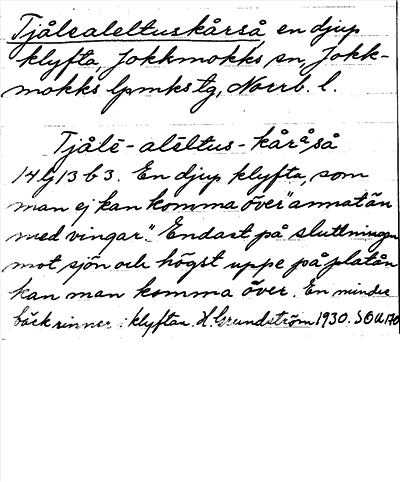 Tjålealeltuskårså, en djup
klyfta, Jokkmokks sn, Jokk-
mokks lpmkstg, Norrb. l.
Tjålē-alēltus-kårå̊så
14 g 13 b 3. En djup klyfta, som
man ej kan komma över "annat än
med vingar". Endast på sluttningen
mot sjön och högst uppe på platån
kan man komma över. En mindre
bäck rinner i klyftan. H. Grundström 1930. SOU